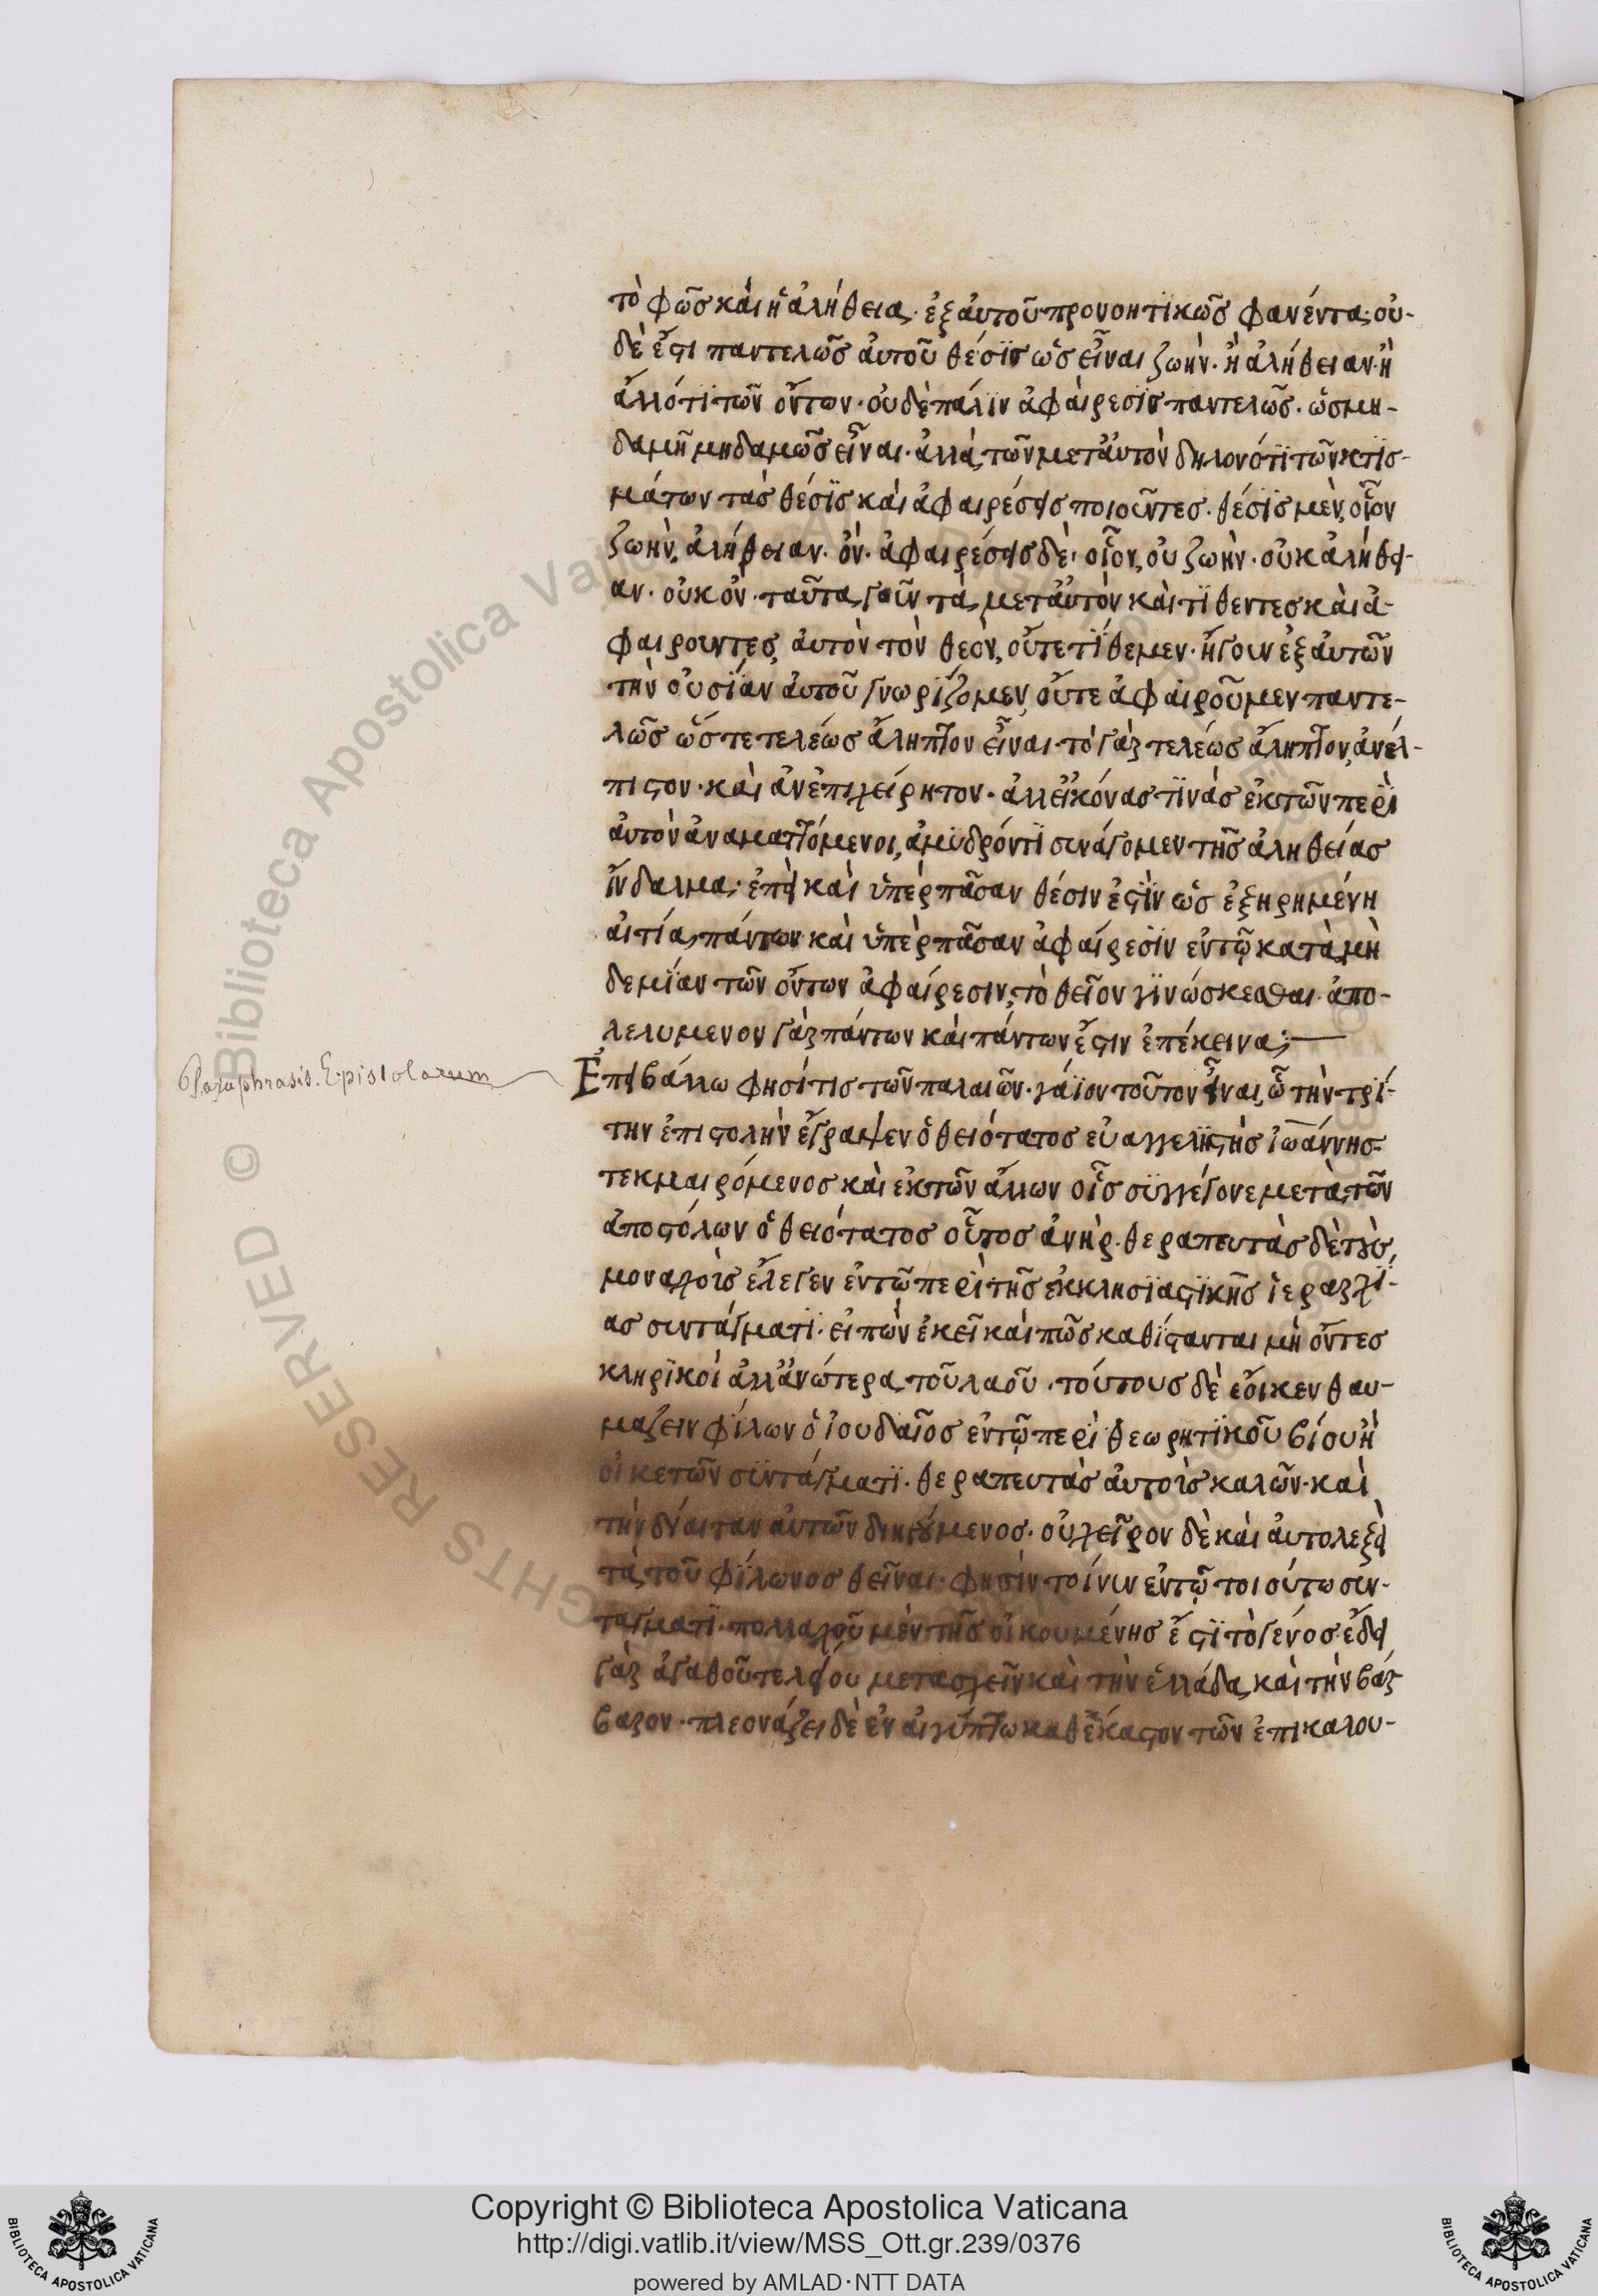 τὸ φῶς καὶ ἡ ἀλήθεια· ἐξ αὐτοῦ προνοητϊκῶς φανέντα· οὐ-
δὲ ἔστι παντελῶς αὐτοῦ θέσϊς ὡς εἶναι ζωὴν· ἢ ἀλήθειαν· ἢ
ἄλλό τϊ τῶν ὄντων· οὐδὲ πάλϊν ἀφαίρεσϊς παντελῶς· ὡς μη-
δαμῆ μηδαμῶς εἶναι· ἀλλὰ τῶν μετ' αὐτὸν δηλονότϊ τῶν κτϊσ-
μάτων τὰς θέσϊς καὶ ἀφαιρέσεις ποιοῦντες· θέσϊς μὲν, οἷον
ζωὴν, ἀλήθειαν· ὄν· ἀφαιρέσεις δὲ· οἷον, οὐ ζωὴν· οὐκ ἀλήθει-
αν· οὐκ ὄν· ταῦτα γοῦν τὰ μετ' αὐτὸν καὶ τϊθεντες καὶ ἀ-
φαιρουντες, αὐτὸν τὸν θεὸν, οὔτε τίθεμεν· ἤγουν ἐξ αὐτῶν
τὴν οὐσίαν αὐτοῦ γνωρίζομεν, οὔτε ἀφαιροῦμεν παντε-
λῶς ὥστε τελέως ἄληπτον εἶναι· τὸ γὰρ τελέως ἄληπτον, ἀνέλ-
πιστον· καὶ ἀνεπιχείρητον· ἀλλ' εἰκόνας τϊνὰς ἐκ τῶν περὶ
αὐτὸν ἀναματτόμενοι, ἀμϋδρόν τϊ συνάγομεν τῆς ἀληθείας
ἴνδαλμα· ἐπεὶ καὶ ὑπὲρ πᾶσαν θέσιν ἐστϊν ὡς ἐξηρημένη
αἰτία πάντων καὶ ὑπὲρ πᾶσαν ἀφαίρεσϊν ἐν τῷ κατὰ μη
δεμϊαν τῶν ὄντων ἀφαίρεσιν, τὸ θεῖον γϊνώσκεσθαι· ἀπο-
λελυμενον γὰρ πάντων καὶ πάντων ἔστιν ἐπέκεινα·:—
Paraphrasis. Epistolarum
Ἐπιβάλλω φησί τις τῶν παλαιῶν· γάϊον τοῦτον εἶναι, ᾧ τὴν τρί-
την ἐπιστολὴν ἔγραψεν ὁ θειότατος εὐαγγελϊστὴς ἰωάννης·
τεκμαιρόμενος καὶ ἐκ τῶν ἄλλων οἷς σϋγγέγονε μετὰ τῶν
ἀποστόλων ὁ θειότατος οὗτος ἀνὴρ· θεραπευτὰς δὲ τοὺς,
μοναχοὺς ἔλεγεν ἐν τῷ περὶ τῆς ἐκκλησϊαστϊκῆς ἱεραρχϊ-
ας συντάγματϊ· εἰπὼν ἐκεῖ καὶ πῶς καθίστανται μὴ ὄντες
κληρϊκοὶ ἀλλ' ἀνώτερα τοῦ λαοῦ· τούτους δὲ ἔοικεν θαυ-
μαζειν φίλων ὁ ἰουδαῖος ἐν τῷ περὶ θεωρητϊκοῦ βίου ἢ
οἰκετῶν σϋντάγματϊ· θεραπευτὰς αὐτοὺς καλῶν· καὶ
τὴν δίαιταν αὐτῶν διηγούμενος· οὐ χεῖρον δὲ καὶ αὐτολεξεὶ
τὰ τοῦ φίλωνος θεῖναι· φησὶν τοίνυν ἐν τῷ τοιούτω συν-
ταγματϊ· πολλαχοῦ μὲν τῆς οἰκουμένης ἔστϊ τὸ γένος· ἔδει
γὰρ ἀγαθοῦ τελείου μετασχεῖν καὶ τὴν ἑλλάδα, καὶ τὴν βάρ
βαρον· πλεονάζει δὲ ἐν αἰγύπτω καθ' ἕκαστον τῶν ἐπικαλου-
Copyright © Biblioteca Apostolica Vaticana
http://digi.vatlib.it/view/MSS_Ott.gr.239/0376
powered by AMLAD·NTT DATA